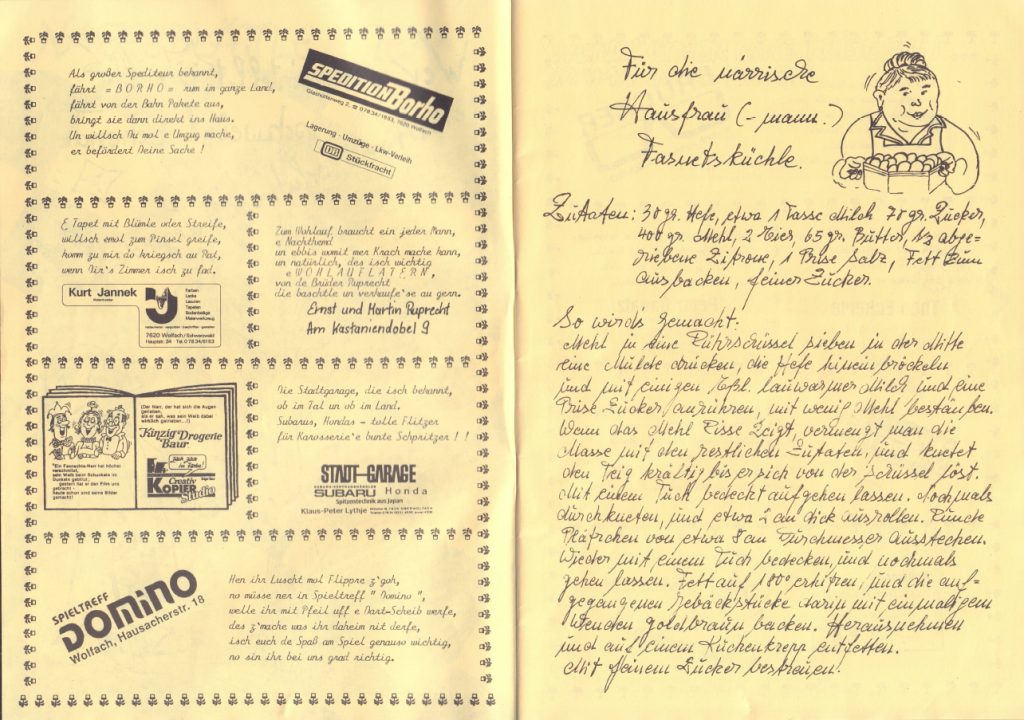 Als großer Spediteur bekannt,
fährt = BORHO = rum im ganze Land,
fährt von der Bahn Pakete aus,
bringt sie dann direkt ins Haus.
Un willsch Du mol e Umzug mache,
er befördert Deine Sache !
SPEDITION Borho
Glashüttenweg 2, ☎ 07834/1653, 7620 Wolfach
Lagerung · Umzüge · Lkw-Verleih
DB Stückfracht
E Tapet mit Blümle oder Streife,
willsch emol zum Pinsel greife,
komm zu mir do kriegsch au Rat,
wenn Dir's Zimmer isch zu fad.
Kurt Jannek
Malermeister
Farben
Lacke
Lasuren
Tapeten
Bodenbeläge
Malerwerkzeug
7620 Wolfach/Schwarzwald
Hauptstr. 24 Tel. 07834/6163
Zum Wohlauf, braucht ein jeder Mann,
e Nachthemd
un ebbis womit mer Krach mache kann,
un natürlich, des isch wichtig
e WOHLAUFLATERN,
von de Brüder Ruprecht
die baschtle un verkaufe'se au gern.
Ernst und Martin Ruprecht
Am Kastaniendobel 9
(Der Narr, der hat sich die Augen
gerieben,
als er sah, was sein Weib dabei
wirklich getrieben...!)
"Ein Fasnachts-Narr hat höchst
verschmitzt,
sein Weib beim Schunkeln im
Dunkeln geblitzt,
gestern hat er den Film uns
gebracht -
heute schon sind seine Bilder
gemacht!
Kinzig-Drogerie
Baur
Jetzt auch
in Farbe!
Creativ
KOPIER
Studio
Die Stadtgarage, die isch bekannt,
ob im Tal un ob im Land.
Subarus, Hondas - tolle Flitzer
für Karosserie'e bunte Schpritzer ! !
STADT-GARAGE
SUBARU Honda
Spitzentechnik aus Japan
Klaus-Peter Lythje
SPIELTREFF
DOMINO
Wolfach, Hausacherstr. 18
Hen ihr Luscht mol Flippre z'goh,
no müsse ner in Spieltreff " Domino ",
welle ihr mit Pfeil uff e Dart-Scheib werfe,
des z'mache was ihr daheim nit derfe,
isch euch de Spaß am Spiel genauso wichtig,
no sin ihr bei uns grad richtig.
Für die närrische
Hausfrau (-mann.)
Fasnetsküchle.
Zutaten: 30 gr. Hefe, etwa 1 Tasse Milch 70 gr. Zucker,
400 gr. Mehl, 2 Eier, 65 gr. Butter, ½ abge-
riebene Zitrone, 1 Prise Salz, Fett zum
ausbacken, feiner Zucker.
So wird's gemacht:
Mehl in eine Rührschüssel sieben in der Mitte
eine Mulde drücken, die Hefe hineinbröckeln
und mit einigen Eßl. lauwarmer Milch und eine
Prise Zucker anrühren, mit wenig Mehl bestäuben.
Wenn das Mehl Risse zeigt, vermengt man die
Masse mit den restlichen Zutaten, und knetet
den Teig kräftig bis er sich von der Schüssel löst.
Mit einem Tuch bedeckt aufgehen lassen. Nochmals
durchkneten, und etwa 2 cm dick ausrollen. Runde
Plätzchen von etwa 8 cm Durchmesser ausstechen.
Wieder mit einem Tuch bedecken, und nochmals
gehen lassen. Fett auf 180° erhitzen, und die auf-
gegangenen Gebäckstücke darin mit einmaligem
Wenden goldbraun backen. Herausnehmen
und auf einem Küchenkrepp entfetten.
Mit feinem Zucker bestreuen.